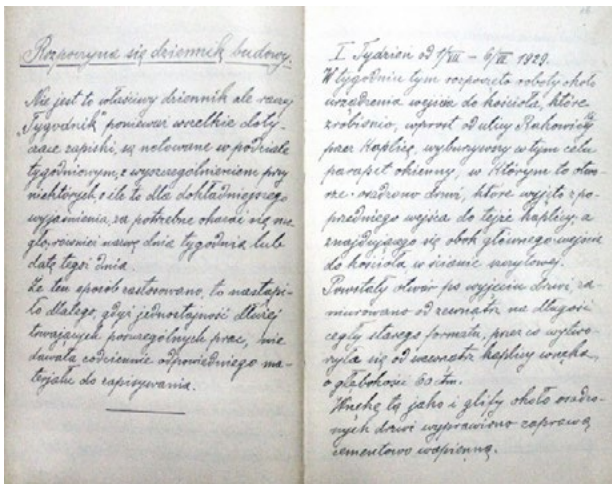 Rozpoczyna się dziennik budowy.
Nie jest to właściwy dziennik ale raczej
„Tygodnik" ponieważ wszelkie doty-
czące zapiski, są notowane w podziale
tygodniowym, z wyszczególnieniem przy
niektórych, o ile to dla dokładniejszego
wyjaśnienia, za potrzebne okazać się mo-
gło, również nazwę dnia tygodnia lub
datę tegoż dnia.
Że ten sposób zastosowano, to nastąpi-
ło dlatego, gdyż jednostajność dłużej
trwających poszczególnych prac, nie
dawała codziennie odpowiedniego ma-
terjału do zapisywania.
I Tydzień od 1/VII – 6/VII 1929.
W tygodniu tym rozpoczęto roboty około
urządzenia wejścia do kościoła, które
zrobiono, wprost od ulicy Rakowickiej
przez kaplicę, wyburzywszy w tym celu
parapet okienny, w którym to otwo-
rze osadzono drzwi, które wyjęto z po-
przedniego wejścia do tejże kaplicy, a
znajdującego się obok głównego wejścia
do kościoła w ścianie szczytowej.
Powstały otwór po wyjęciu drzwi, za-
murowano od zewnątrz na długość
cegły starego formatu, przez co wytwo-
rzyła się od wewnątrz kaplicy wnęka,
o głębokości 60 ctm.
Wnękę tą jako i glify około osadzo-
nych drzwi wyprawiono zaprawą
cementowo wapienną.